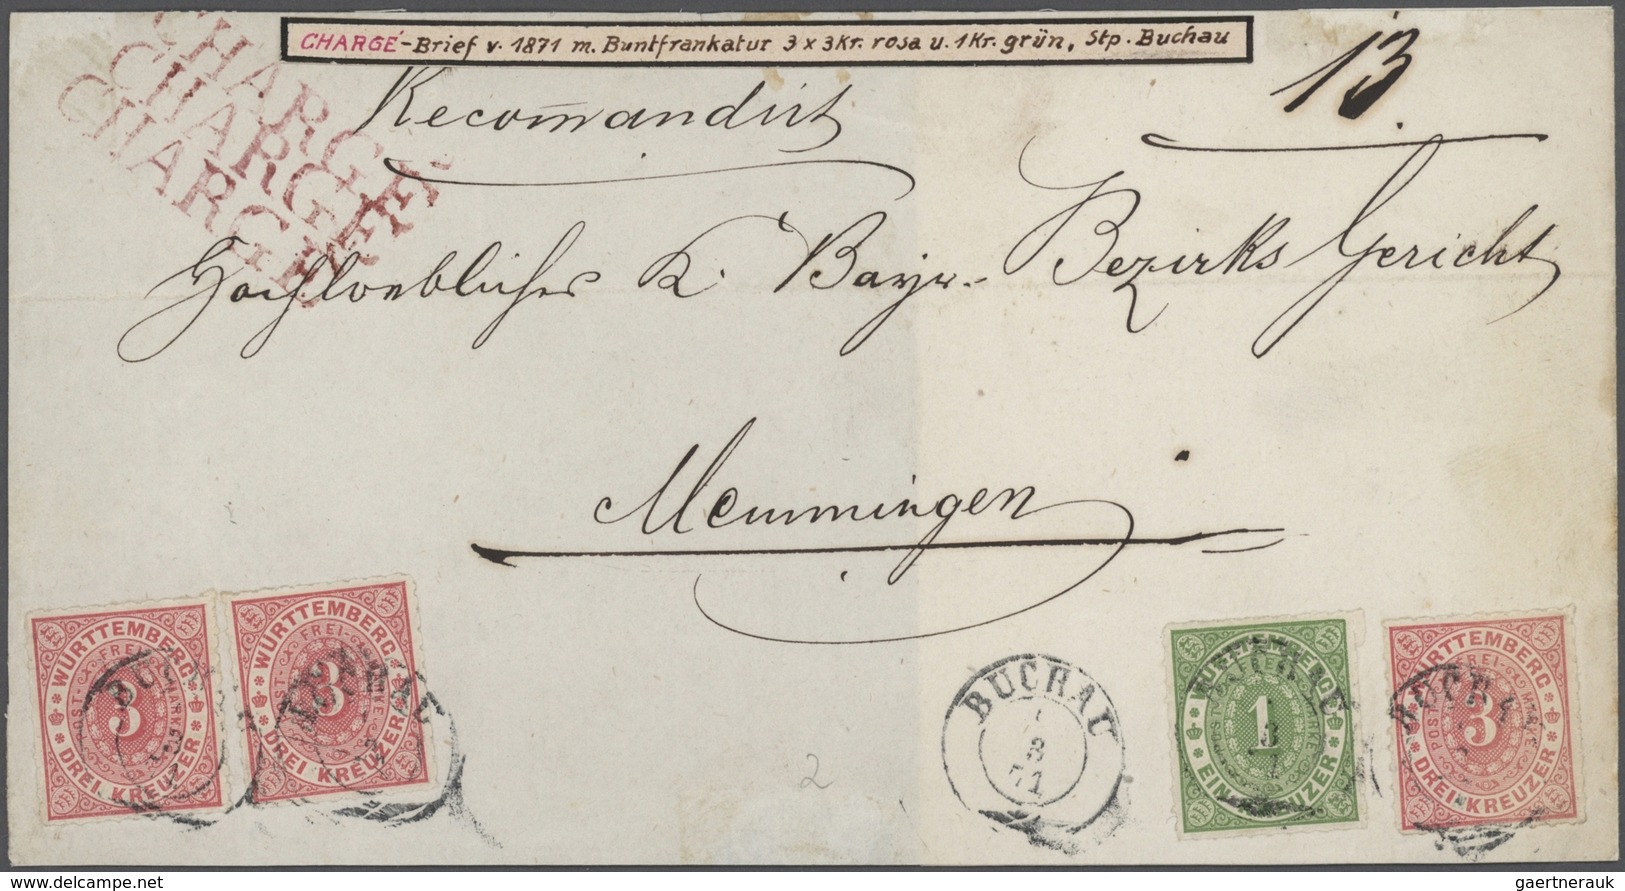 CHARGÉ-Brief v. 1871 m. Buntfrankatur 3 x 3Kr. rosa u. 1Kr. grün, Stp. Buchau
CHARGÉ
CHARGÉ
CHARGÉ
Recom̄andirt
13.
Hochloebliches K. Bayr. Bezirks Gericht
Memmingen
WÜRTTEMBERG
FREI-MARKE
POST-
3
DREI KREUZER
WÜRTTEMBERG
FREI-
POST-
3
DREI KREUZER
BUCHAU
3
71
2
WÜRTTEMBERG
1
EIN KREUZER
WÜRTTEMBERG
POST-FREI-MARKE
3
DREI KREUZER
delcampe.net
gaertnerauk